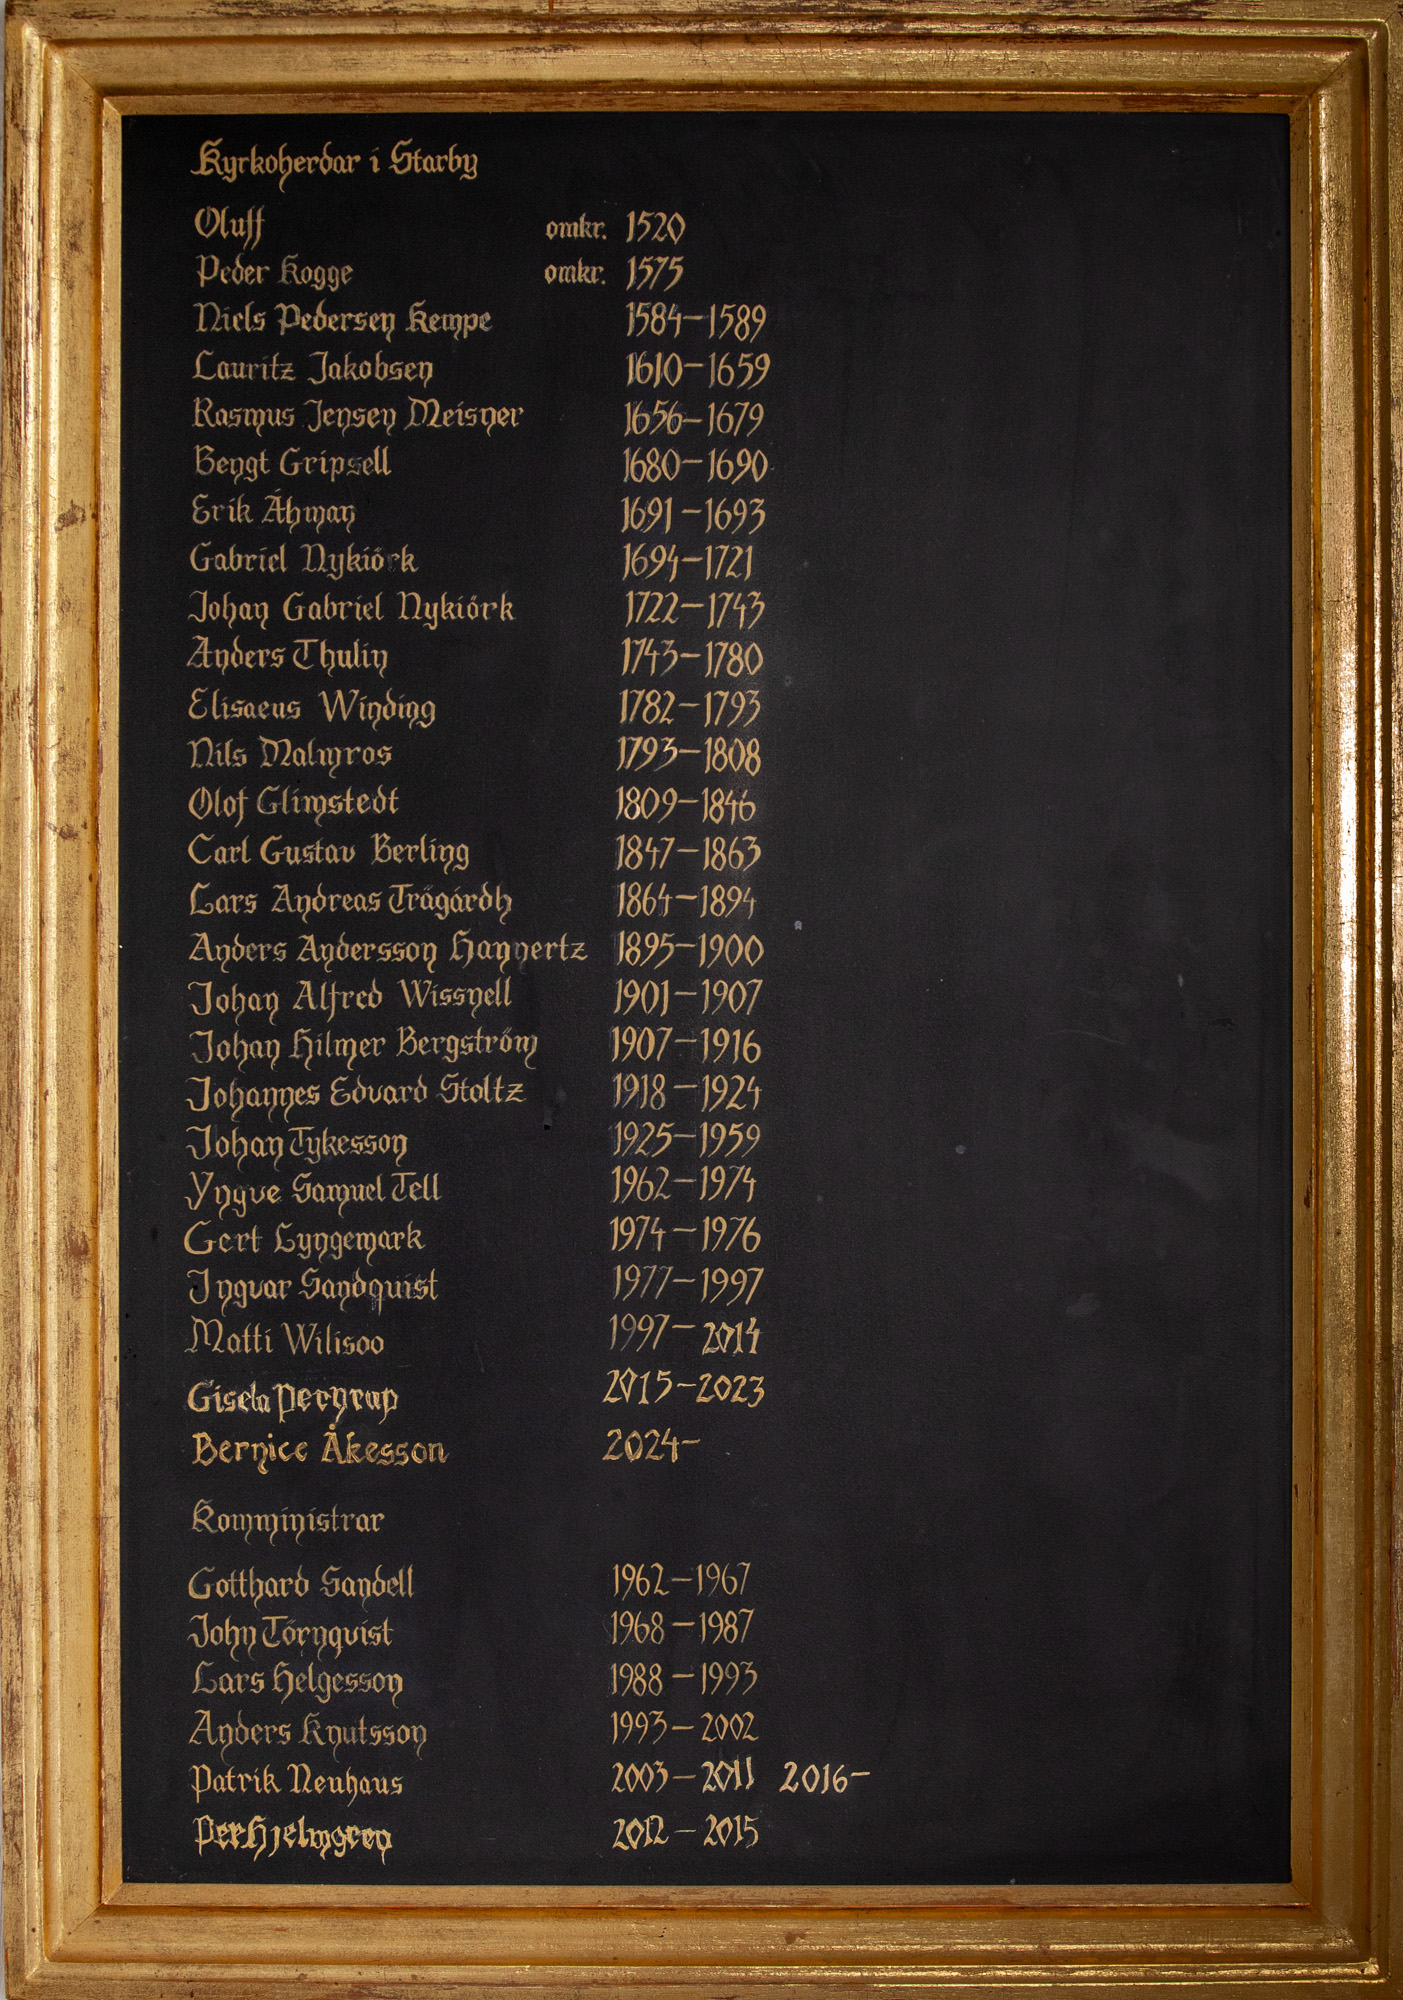 Kyrkoherdar i Starby
Oluff omkr. 1520
Peder Kogge omkr. 1575
Niels Pedersen Kempe 1584-1589
Lauritz Jakobsen 1610-1659
Rasmus Jensen Meisner 1656-1679
Bengt Gripsell 1680-1690
Erik Åhman 1691-1693
Gabriel Nykiörk 1694-1721
Johan Gabriel Nykiörk 1722-1743
Anders Thulin 1743-1780
Elisaeus Winding 1782-1793
Nils Malmros 1793-1808
Olof Glimstedt 1809-1846
Carl Gustav Berling 1847-1863
Lars Andreas Trägårdh 1864-1894
Anders Andersson Hannertz 1895-1900
Johan Alfred Wissnell 1901-1907
Johan Hilmer Bergström 1907-1916
Johannes Edvard Stoltz 1918-1924
Johan Tykesson 1925-1959
Yngve Samuel Tell 1962-1974
Gert Lyngemark 1974-1976
Ingvar Sandquist 1977-1997
Matti Wilisoo 1997-2014
Gisela Pernrup 2015-2023
Bernice Åkesson 2024-
Komministrar
Gotthard Sandell 1962-1967
John Törnqvist 1968-1987
Lars Helgesson 1988-1993
Anders Knutsson 1993-2002
Patrik Neuhaus 2003-2011 2016-
Per Hjelmgren 2012-2015